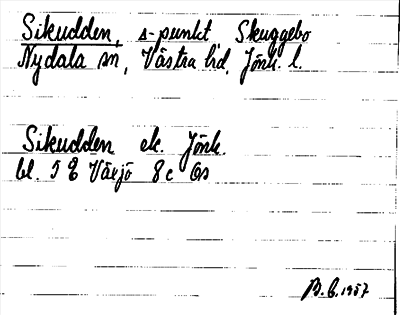 Sikudden, s-punkt Skuggebo
Nydala sn, Västra hd, Jönk. l.
Sikudden ek. Jönk.
bl. 5 E Växjö 8c Gs
B.G. 1957